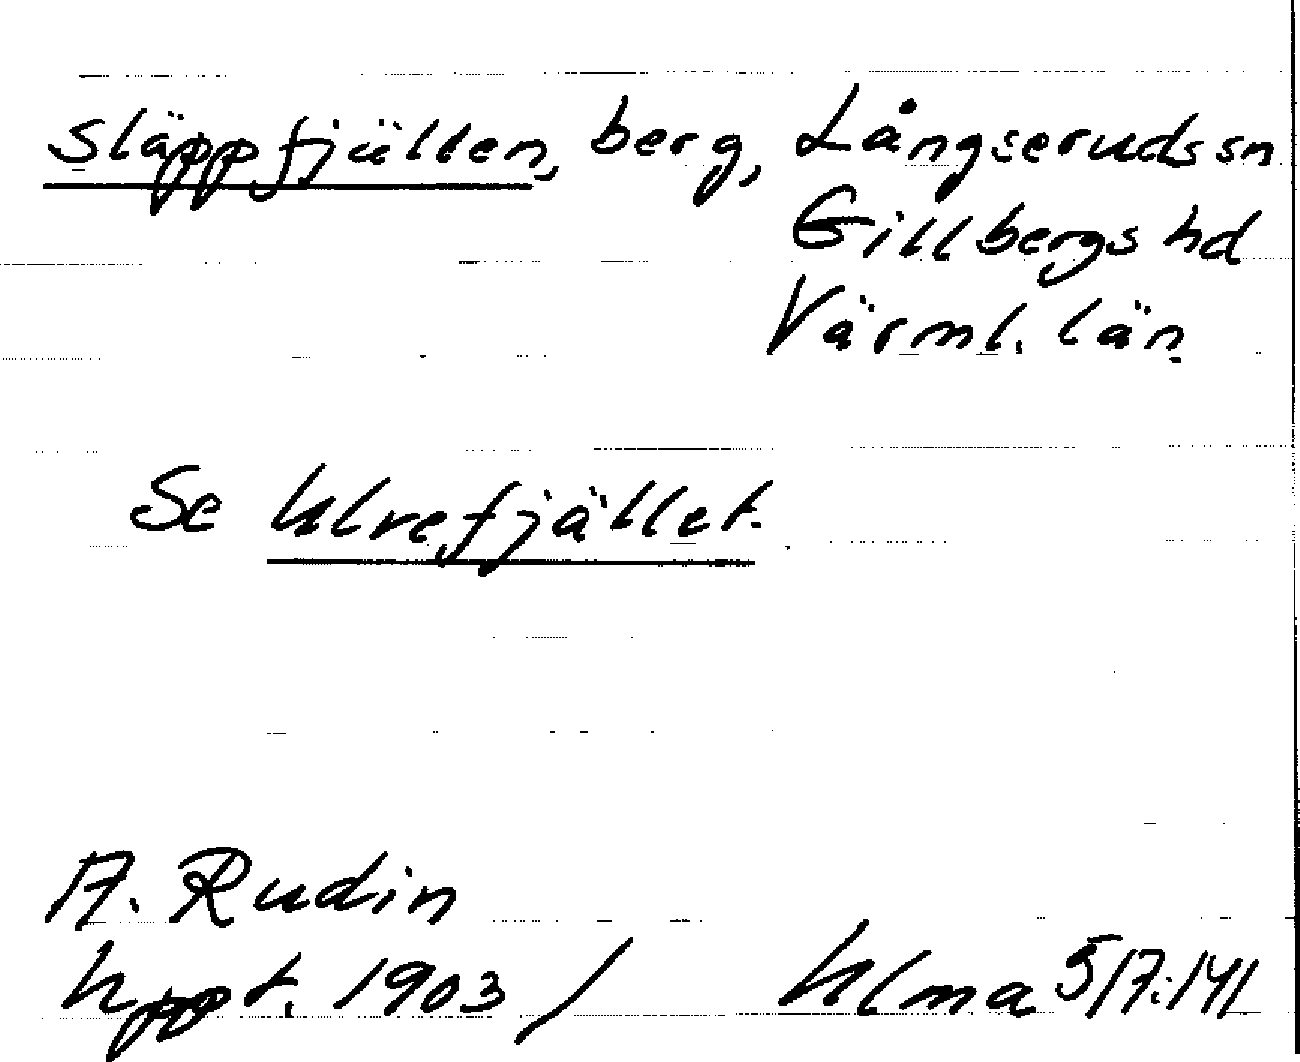 Släppfjällen, berg, Långseruds sn
Gillbergs hd
Värml. län
Se Ulvefjället.
A. Rudin
Uppt. 1903 /
Ulma 517:141